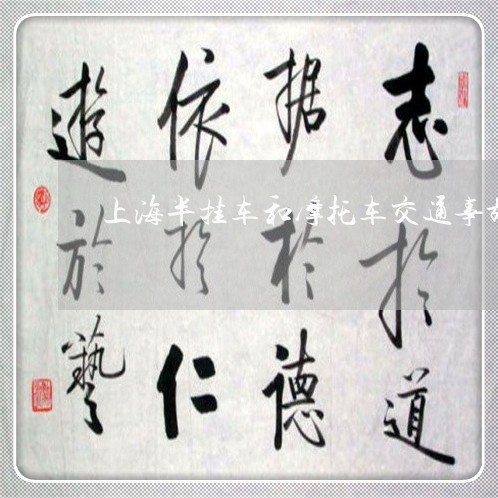 志於道
据於德
依於仁
遊於藝
上海半挂车和摩托车交通事